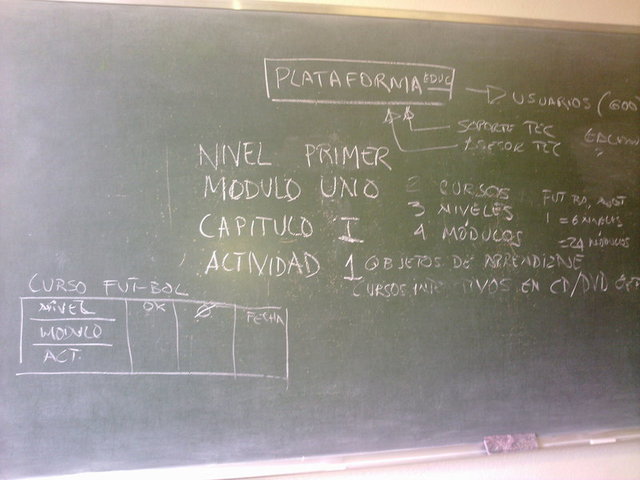 PLATAFORMA EDUC
USUARIOS (600
SOPORTE TEC
ASESOR TEC
NIVEL PRIMER
MODULO UNO
CAPITULO I
ACTIVIDAD 1
2 CURSOS
3 NIVELES
4 MÓDULOS
1 = 6 NIVELES
=24 MÓDULOS
OBJETOS DE APRENDIZAJE
CURSOS EN CD/DVD
CURSO FUT-BOL
NIVEL OK Ø FECHA
MODULO
ACT.